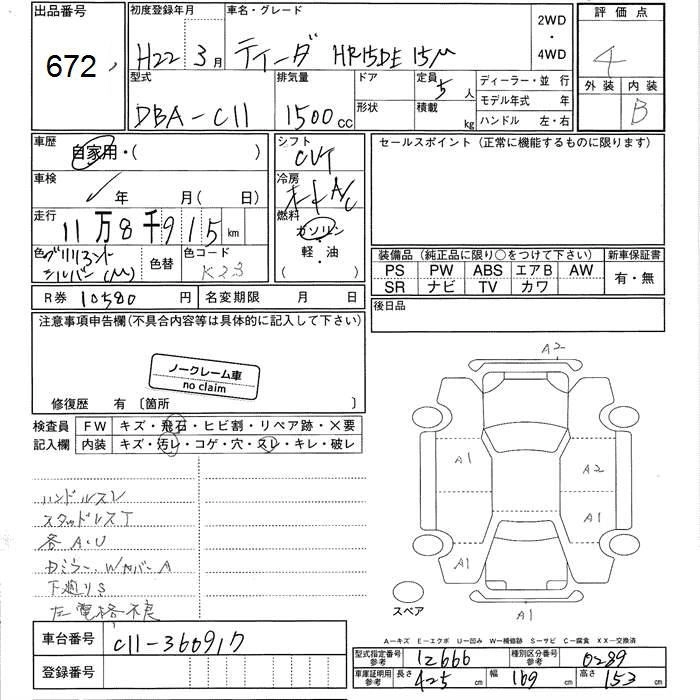 出品番号
672
初度登録年月
H22 3月
車名・グレード
ティーダ HR15DE 15M
2WD
・
4WD
評価点
4
外装 内装
B
型式
DBA-C11
排気量
1500cc
ドア
形状
定員 5人
積載 kg
ディーラー・並 行
モデル年式 年
ハンドル 左・右
車歴
自家用・( )
車検
年 月( 日)
走行
11万8千915km
シフト
CVT
冷房
オートA/C
燃料
ガソリン
軽・油
( )
色 ブリリアントシルバー(M)
色替
色コード
K23
R券 10580円
名変期限 月 日
セールスポイント(正常に機能するものに限ります)
装備品(純正品に限り○をつけて下さい)
新車保証書
PS PW ABS エアB AW
SR ナビ TV カワ
有・無
後日品
注意事項申告欄(不具合内容等は具体的に記入して下さい)
ノークレーム車
no claim
修復歴 有〔箇所 〕
検査員
記入欄
FW キズ・飛石・ヒビ割・リペア跡・×要
内装 キズ・汚レ・コゲ・穴・スレ・キレ・破レ
ハンドルスレ
スタッドレスT
各A・U
下廻りS
A2
A1
A2
A1
A1
A1
A1
スペア
A-キズ E-エクボ U-凹み W-補修跡 S-サビ C-腐食 XX-交換済
車台番号 C11-366917
登録番号
型式指定番号
参考
12666
種別区分番号
参考
0289
車庫証明用
参考
長さ 425cm 幅 169cm 高さ 153cm